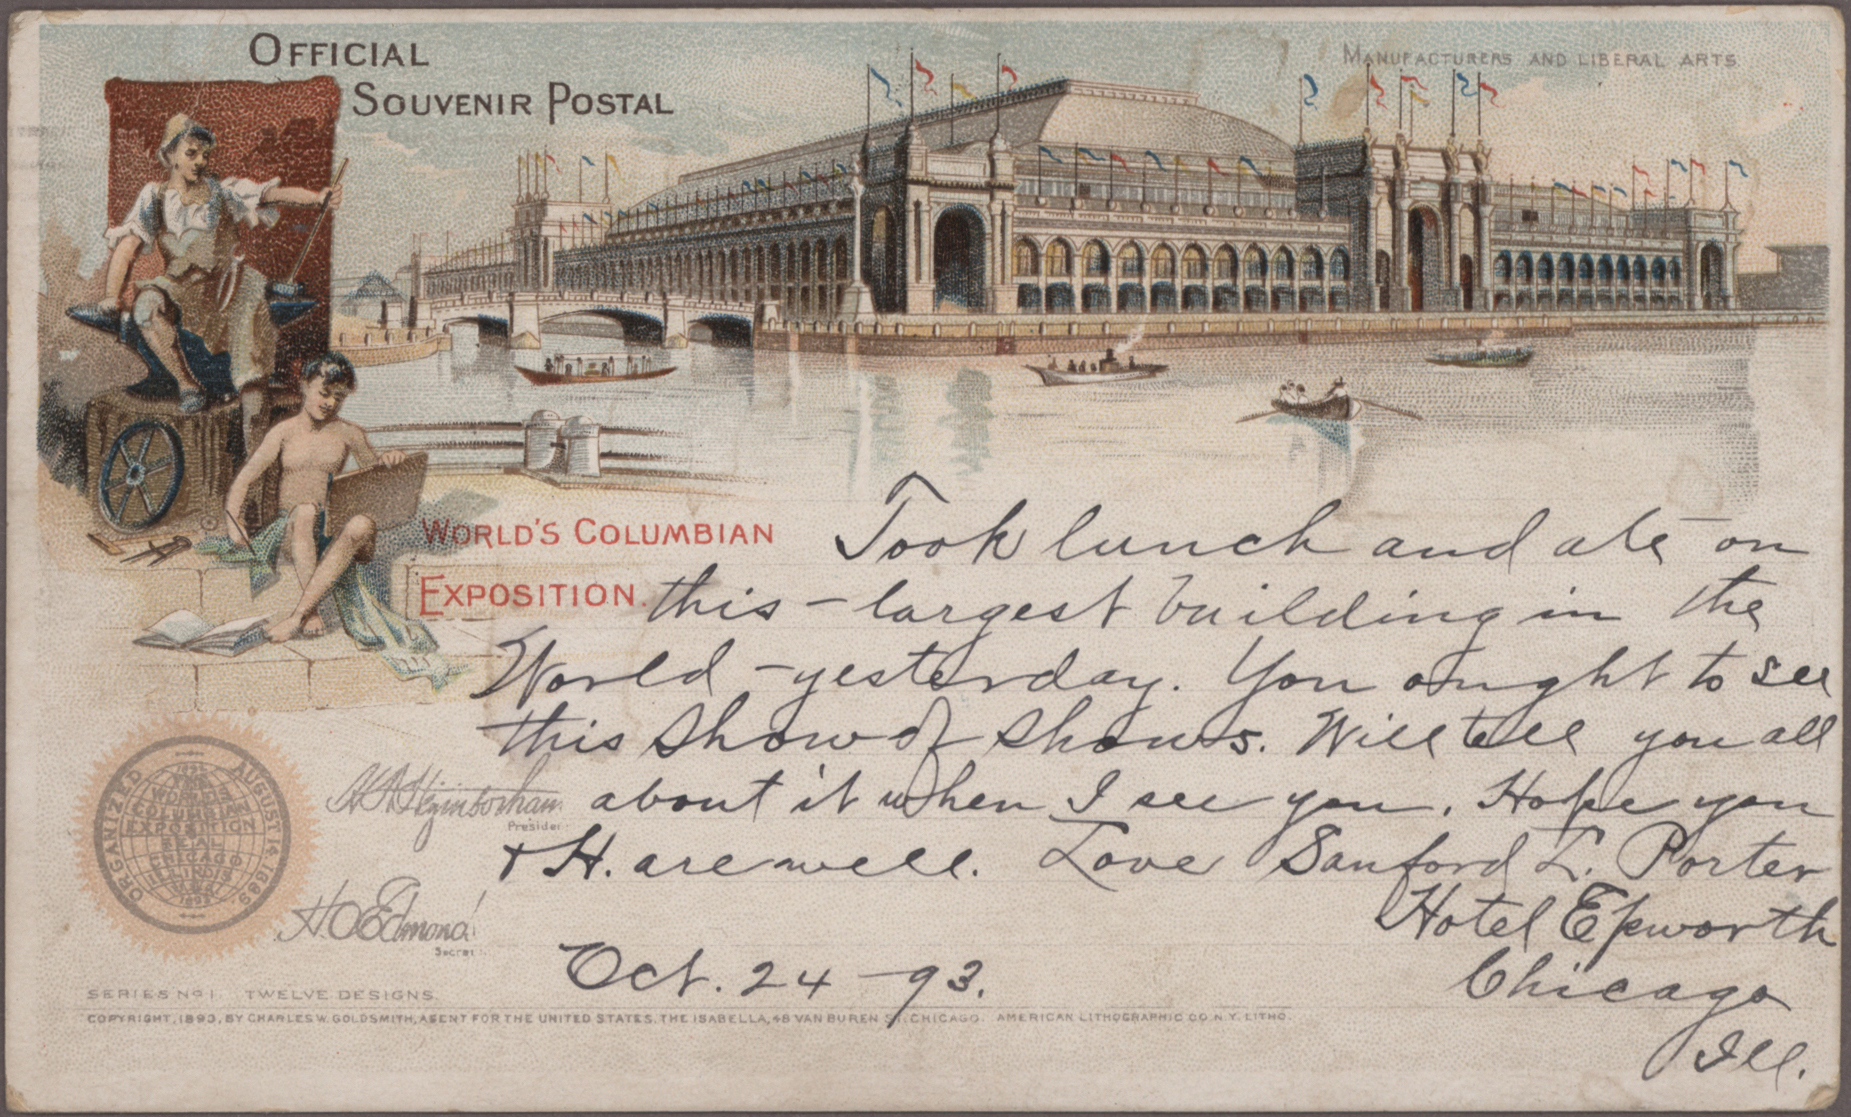 OFFICIAL
SOUVENIR POSTAL
MANUFACTURERS AND LIBERAL ARTS
WORLD'S COLUMBIAN
EXPOSITION.
Took lunch and ate on
this - largest building in the
World - yesterday. You ought to see
this show of shows. Will tell you all
about it when I see you. Hope you
+ H. are well. Love Sanford L. Porter
Hotel Epworth
Chicago
Ill.
Oct. 24 - 93.
ORGANIZED AUGUST 14, 1889
WORLD'S
COLUMBIAN
EXPOSITION
SEAL
CHICAGO
ILLINOIS
U.S.A.
1893
H N Higinbotham
Presiden
H.O. Edmond
Secret
SERIES No 1 TWELVE DESIGNS.
COPYRIGHT, 1893, BY CHARLES W. GOLDSMITH, AGENT FOR THE UNITED STATES. THE ISABELLA, 48 VAN BUREN ST. CHICAGO. AMERICAN LITHOGRAPHIC CO. N.Y. LITHO.